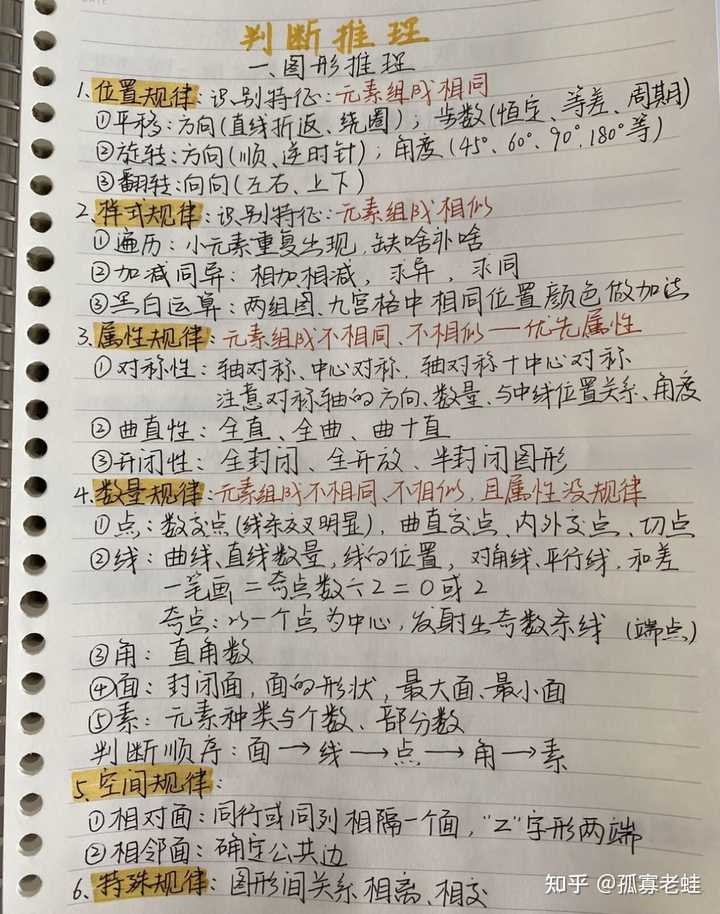 判断推理
一、图形推理
1.位置规律:识别特征:元素组成相同
①平移:方向(直线折返、绕圈);步数(恒定、等差、周期)
②旋转:方向(顺、逆时针);角度(45°、60°、90°、180°等)
③翻转:向向(左右、上下)
2、样式规律:识别特征:元素组成相似
①遍历:小元素重复出现,缺啥补啥
②加减同异:相加相减,求异,求同
③黑白运算:两组图、九宫格中相同位置颜色做加法
3、属性规律:元素组成不相同、不相似——优先属性
①对称性:轴对称、中心对称、轴对称十中心对称
注意对称轴的方向、数量、与中线位置关系、角度
②曲直性:全直、全曲、曲十直
③开闭性:全封闭、全开放、半封闭图形
4、数量规律:元素组成不相同、不相似,且属性没规律
①点:数交点(线条交叉明显),曲直交点、内外交点、切点
②线:曲线、直线数量,线的位置,对角线、平行线,和差
一笔画=奇点数÷2=0或2
奇点:以一个点为中心,发射出奇数条线(端点)
③角:直角数
④面:封闭面,面的形状,最大面、最小面
⑤素:元素种类与个数、部分数
判断顺序:面→线→点→角→素
5、空间规律:
①相对面:同行或同列相隔一个面,“Z”字形两端
②相邻面:确定公共边
6、特殊规律:图形间关系相离、相交
知乎 @孤寡老蛙